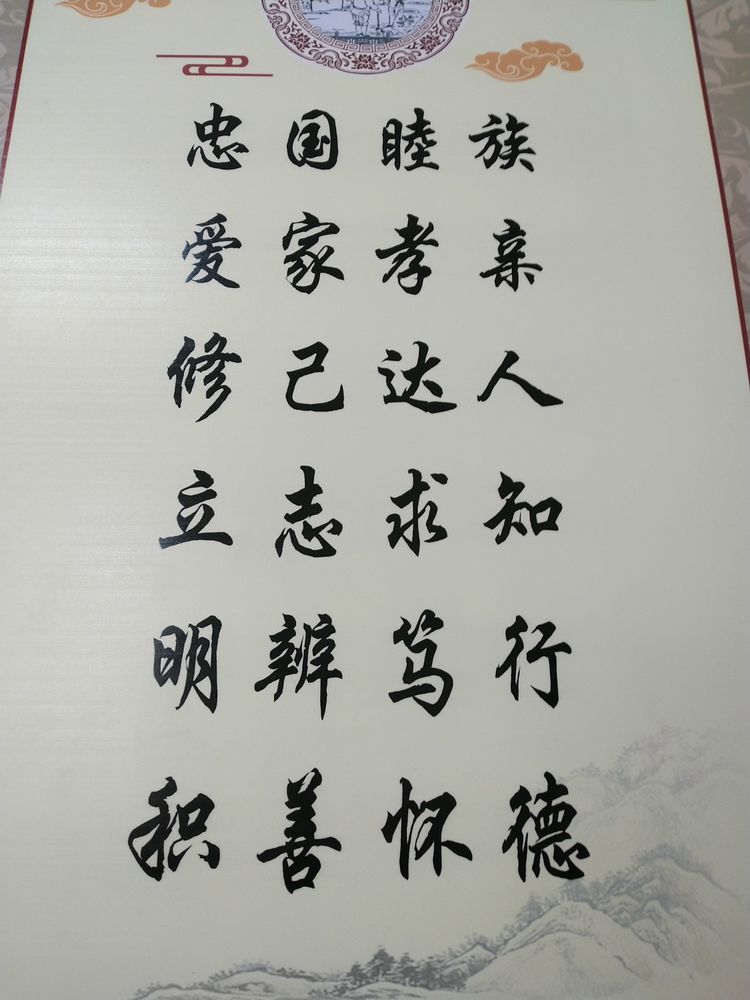 忠国睦族
爱家孝亲
修己达人
立志求知
明辨笃行
积善怀德